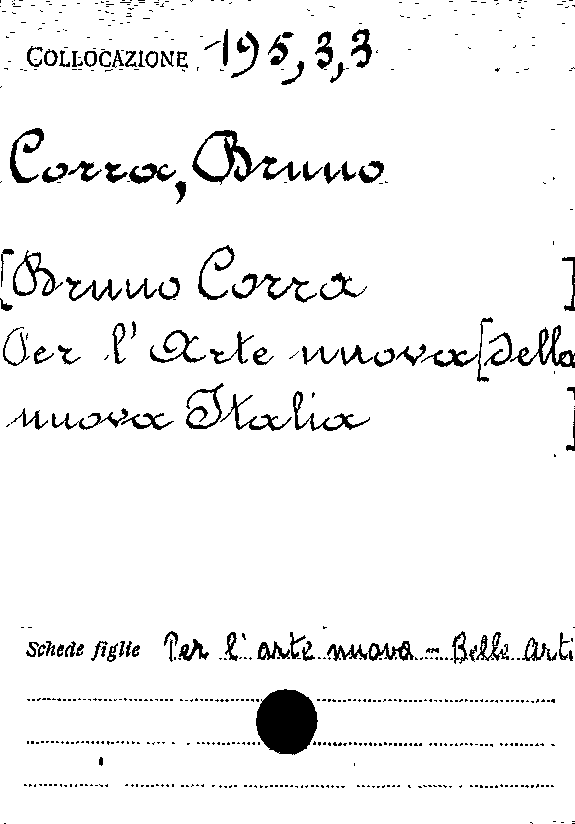 COLLOCAZIONE 195,3,3
Corra, Bruno
[Bruno Corra ]
Per l'Arte nuova [della
nuova Italia ]
Schede figlie Per l'arte nuova - Belle Arti